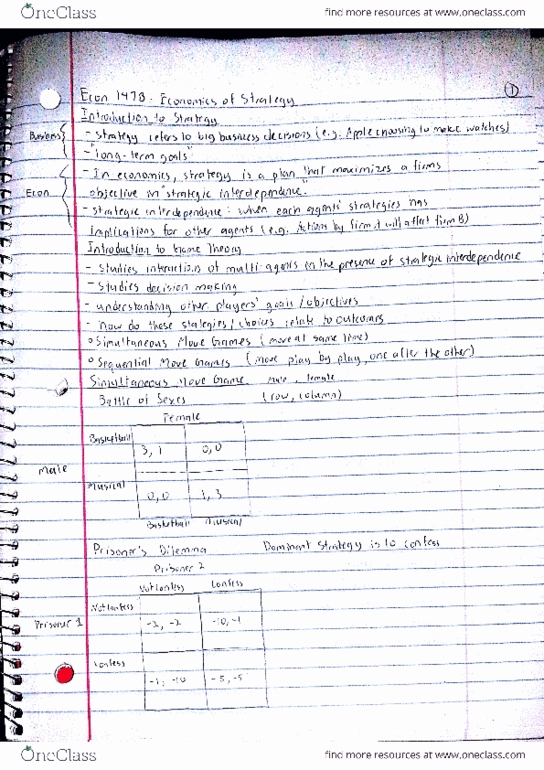 OneClass
find more resources at www.oneclass.com
1
Econ 1478 - Economics of Strategy
Introduction to Strategy
Business
- strategy refers to big business decisions (e.g. Apple choosing to make watches)
- "long-term goals"
Econ
- In economics, strategy is a plan that maximizes a firms
objective in "strategic interdependence."
- strategic interdependence: when each agents' strategies has
implications for other agents (e.g. Actions by firm A will affect firm B)
Introduction to Game Theory
- studies interactions of multi-agents in the presence of strategic interdependence
- Studies decision making
- understanding other players' goals/objectives
- how do these strategies/choices relate to outcomes
Simultaneous Move Games (move at same time)
Sequential Move Games (move play by play, one after the other)
Simultaneous Move Game Male, Female
Battle of Sexes (row, column)
Female
Basketball
3, 1 0, 0
Male
Musical
0, 0 1, 3
Basketball Musical
Prisoner's Dilemma Dominant Strategy is to confess
Prisoner 2
Not Confess Confess
Not Confess
Prisoner 1 -2, -2 -10, -1
Confess
-1, -10 -5, -5
OneClass
find more resources at www.oneclass.com